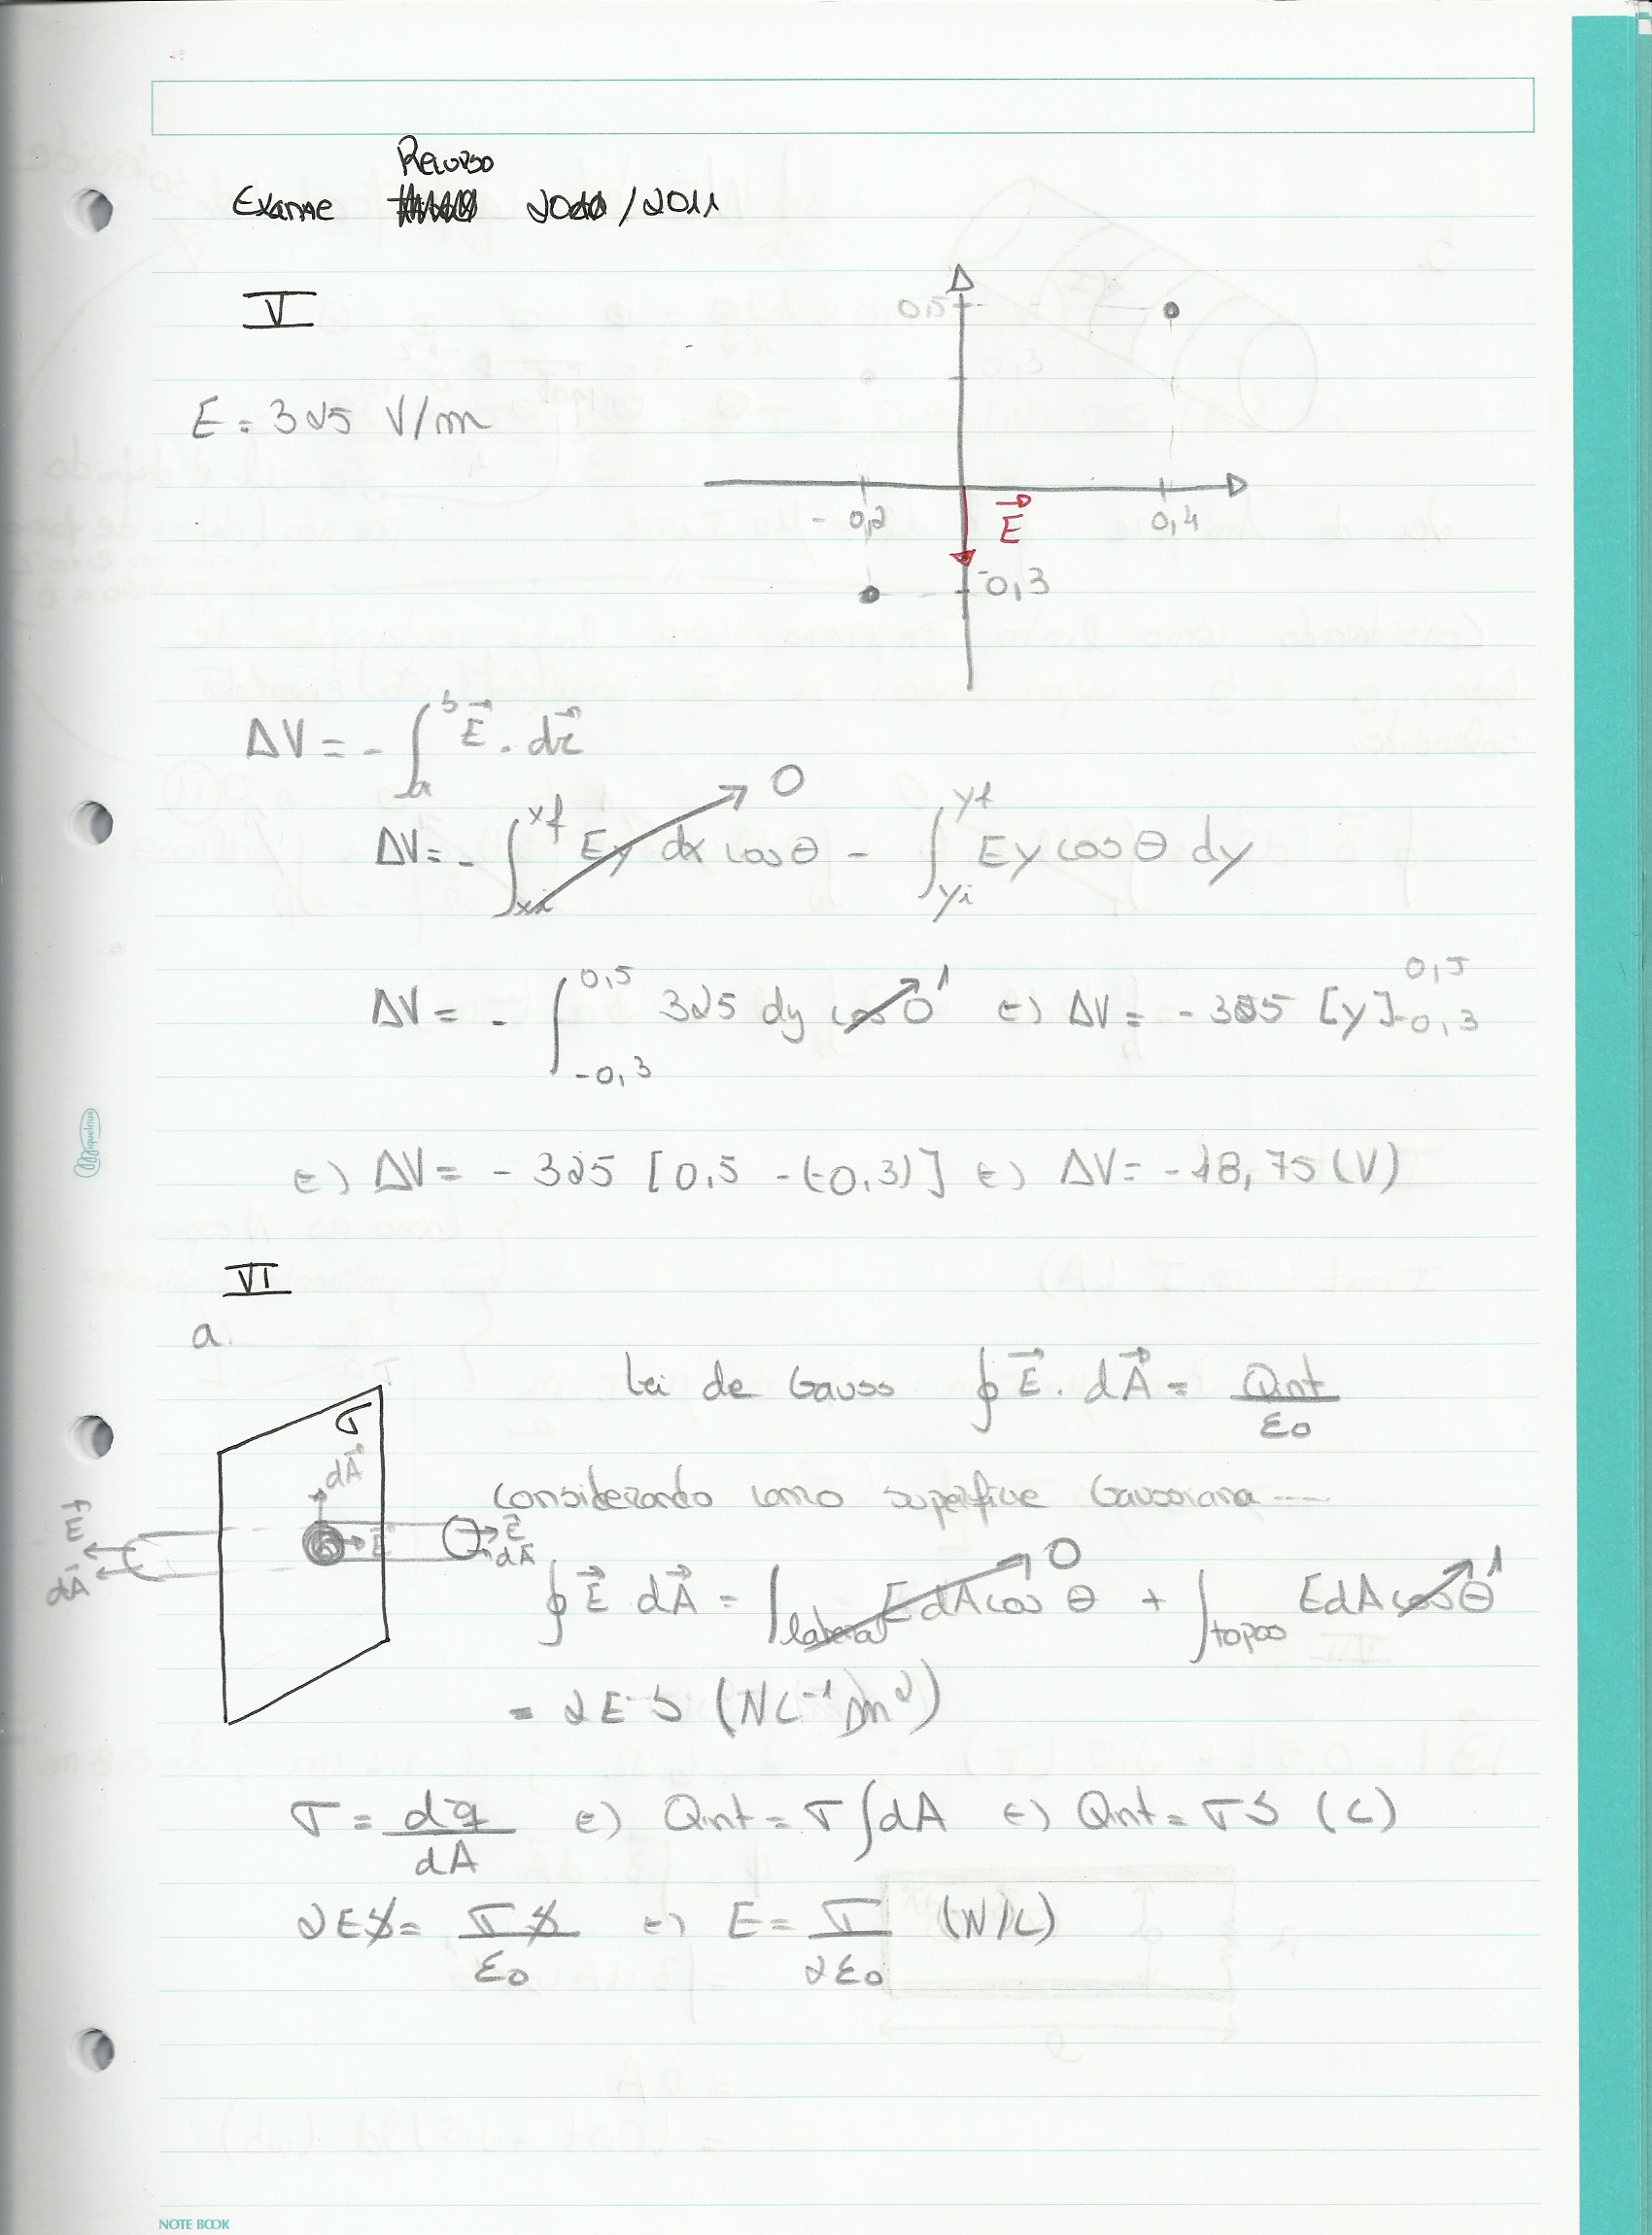 Recurso
Exame 2010/2011
V
0,5
E = 325 V/m
0,3
-0,2
E⃗
0,4
-0,3
ΔV = - ∫_a^b E⃗ . dr⃗
ΔV = - ∫_xi^xf Ey dx cosθ → 0 - ∫_yi^yf Ey cosθ dy
ΔV = - ∫_-0,3^0,5 325 dy cos 0 → 1 (=) ΔV = - 325 [y]_-0,3^0,5
(=) ΔV = - 325 [0,5 - (-0,3)] (=) ΔV = -18,75 (V)
VI
a.
Lei de Gauss ∮ E⃗ . dA⃗ = Qint/ε0
σ
dA⃗
considerando como superfície Gaussiana ----
E⃗
E⃗
E⃗
dA⃗
dA⃗
∮ E⃗ dA⃗ = ∫_lateral E dA cos θ → 0 + ∫_topos E dA cos θ → 1
= 2ES (NC⁻¹m²)
σ = dq/dA (=) Qint = σ ∫dA (=) Qint = σS (C)
2ES = σS/ε0 (=) E = σ/2ε0 (N/C)
Miquelrius
NOTE BOOK